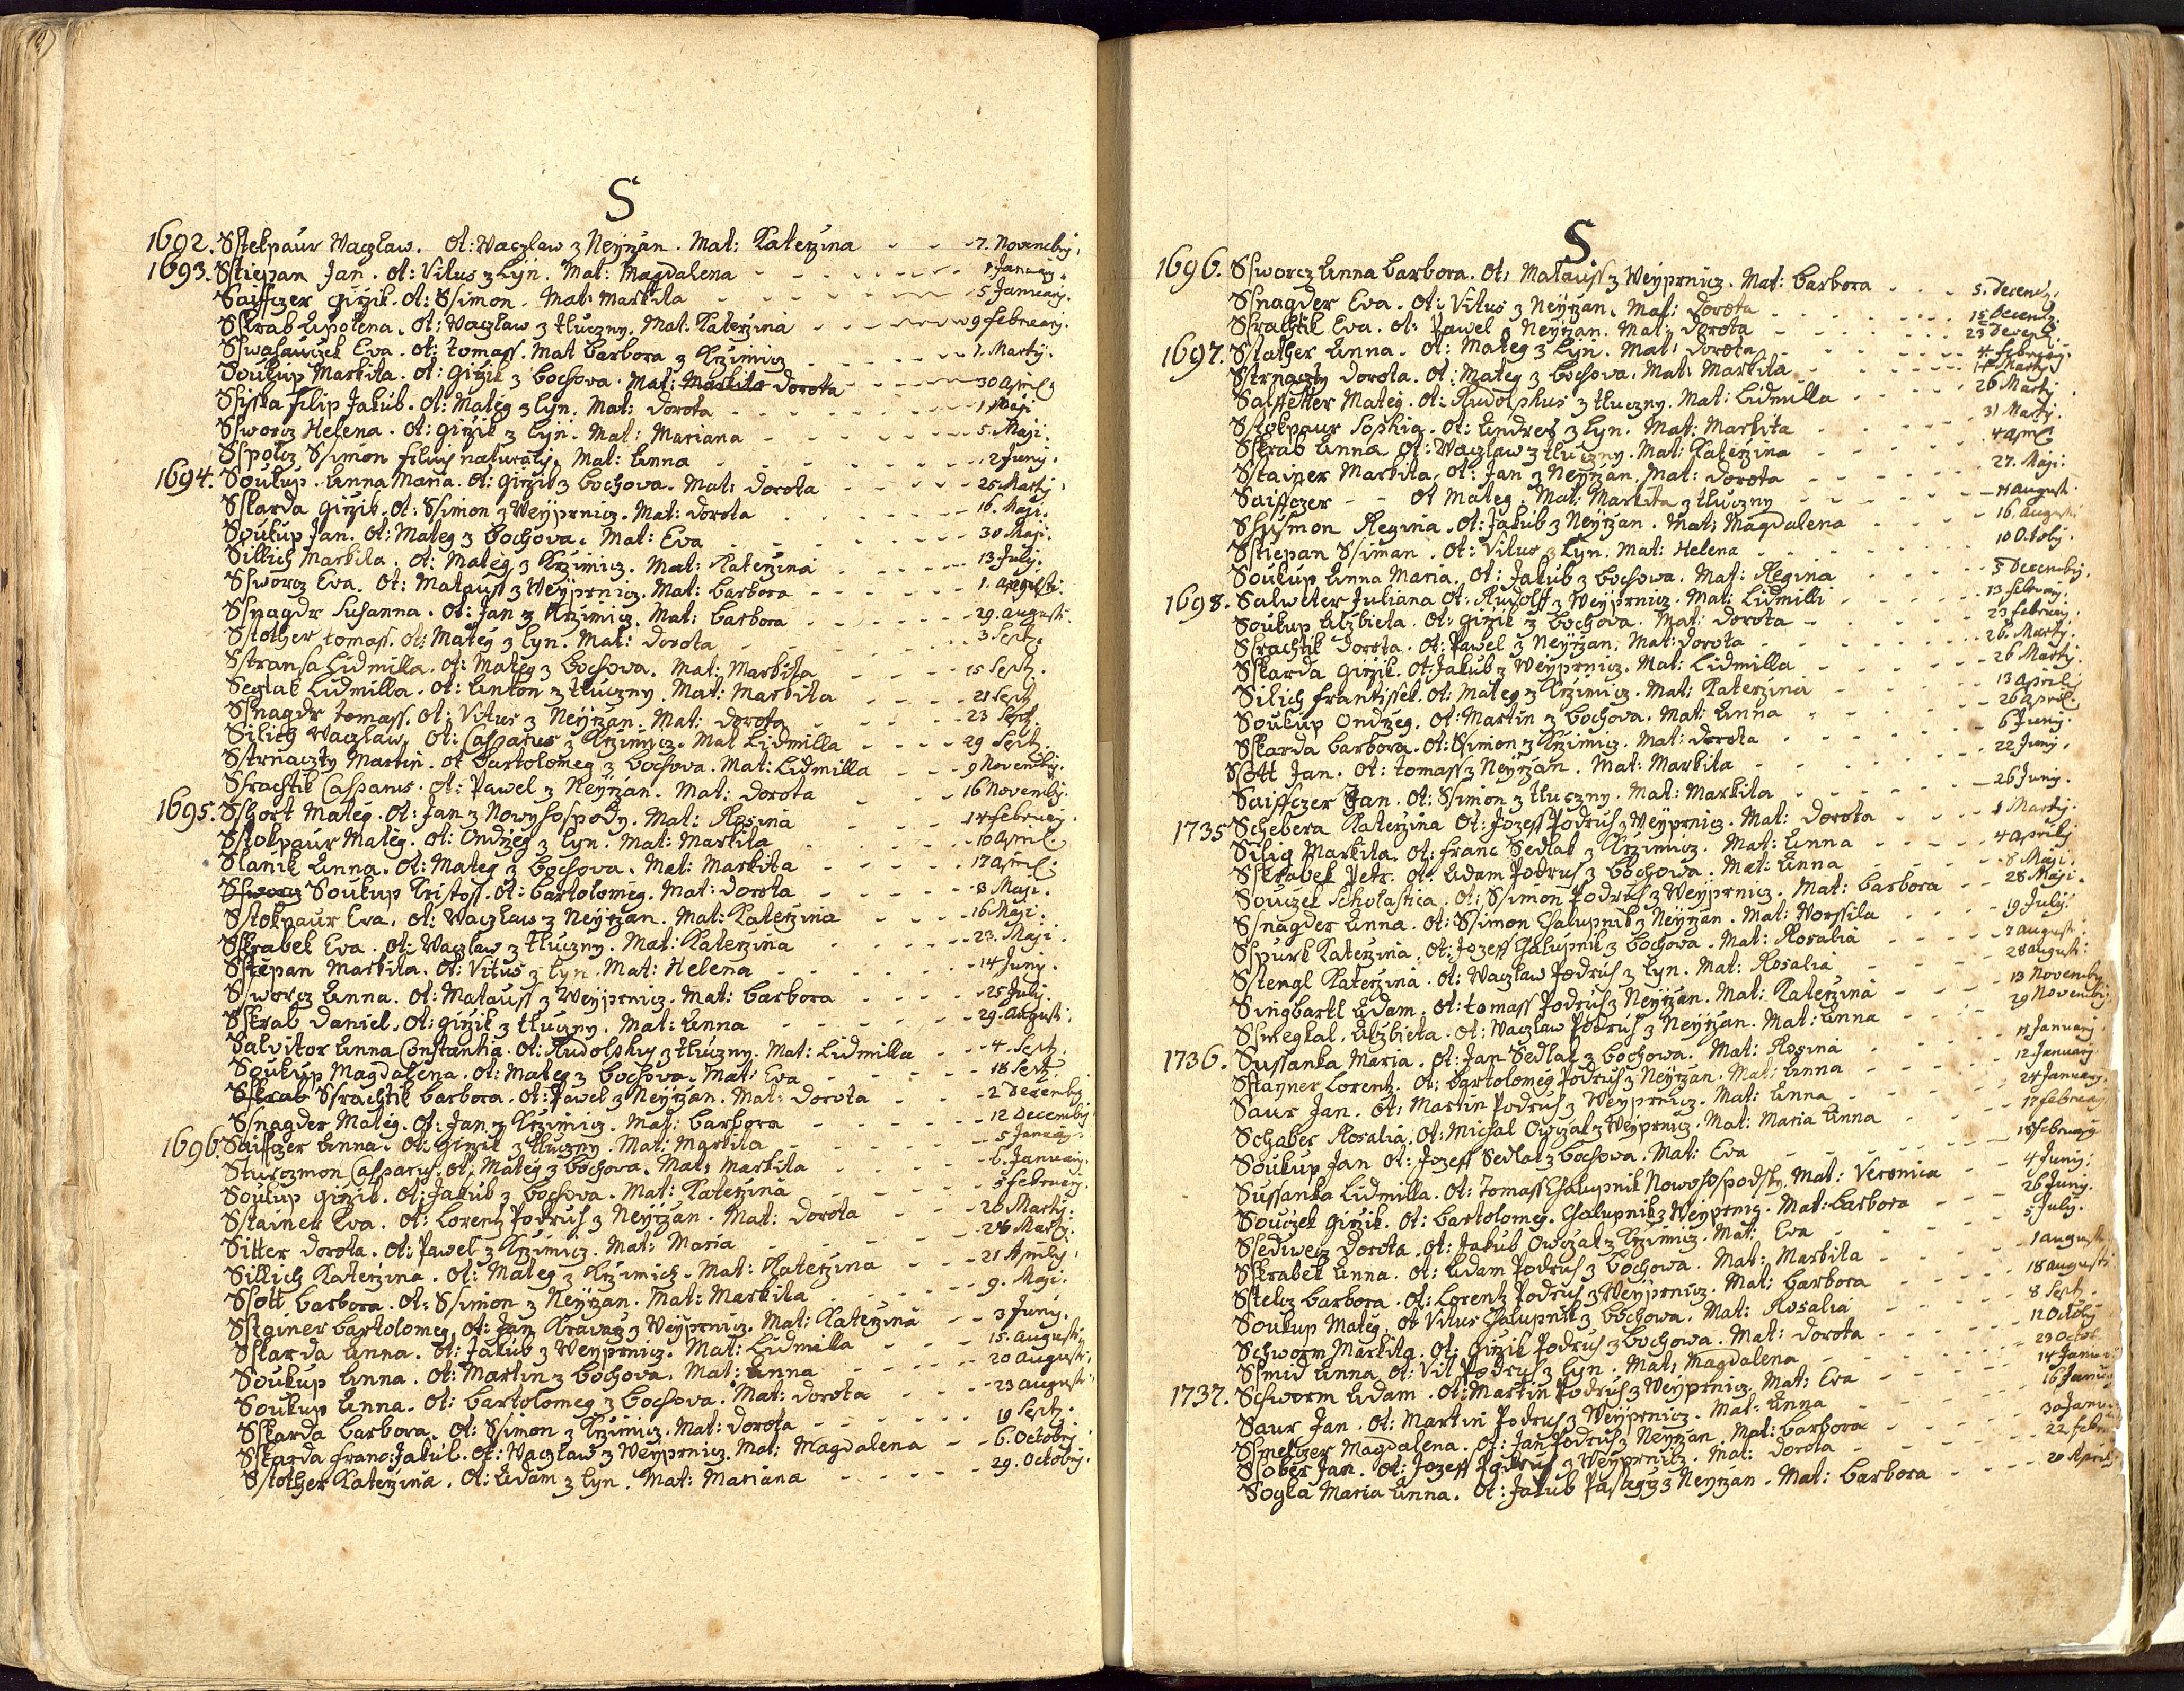 S
1692. Sstekpaur Waczław. Ot: Waczlaw z Neyrzan. Mat: Katerzina - - - 7. Novembrj.
1693. Sstiepan Jan. Ot: Vitus z Lyn. Mat: Magdalena - - - 1 January.
Saiffczer Girzik. Ot: Ssimon. Mat: Markita - - - 5 January.
Sskrab Apolena. Ot: Waczław z tłuczny. Mat: Katerzina - - - 9 february.
Sswasauczek Eva. Ot: tomass. Mat barbora z Krzimicz - - - 1. Martij.
Soukup Markita. Ot: Girzik z bochova. Mat: Markita dorota - - - 30 April
Ssisska filip Jakub. Ot: Mateg z Lyn. Mat: dorota - - - 1 Maji
Ssworcz Helena. Ot: girzik z Lyn. Mat: Mariana - - - 5. Maji.
Sspolcz Ssimon filius naturalis. Mat: Anna - - - 2 Juny.
1694. Soukup. Anna Maria. Ot: girzik z bochova. Mat: dorota - - - 25 Martij
Sskarda girzik. Ot: Ssimon z Weyprnicz. Mat: dorota - - - 16. Maji.
Soukup Jan. Ot: Mateg z bochova. Mat: Eva - - - 30 Maji.
Sillich Markita. Ot: Mateg z Krzimicz. Mat: Katerzina - - - 13 July.
Ssworcz Eva. Ot: Matauss z Weyprnicz. Mat: barbora - - - 1. Augusti.
Ssnagdr Susanna. Ot: Jan z Krzimicz. Mat: barbora - - - 29. augusti.
Sstother tomass. Ot: Matey z Lyn. Mat: dorota - - - 3 Sept.
Sstransa Lidmilla. Ot: Mateg z bochova. Mat: Markita - - - 15 Sept.
Seglak Lidmilla. Ot: Anton z tłuczny. Mat: Markita - - - 21 Sept
Ssnagdr tomass. Ot: Vitus z Neyrzan. Mat: dorota - - - 23 Sept.
Silich Waczlaw. Ot: Casparus z Krzimicz. Mat Lidmilla - - - 29 Sept.
Sstrnaczty Martin. Ot bartolomeg z bochova. Mat: Lidmilla - - - 9 Novembrj.
Ssrachtik Casparus. Ot: Pawel z Neyrzan. Mat: dorota - - - 16 Novembrj.
1695. Sshort Mateg. Ot: Jan z Nowyhospody. Mat: Rosina - - - 14 february.
Sstokpaur Mateg. Ot: Ondrzeg z Lyn. Mat: Markita - - - 10 April.
Slanik Anna. Ot: Mateg z bochova. Mat: Markita - - - 17 April.
Ssworcz Soukup Kristoff. Ot: bartolomeg. Mat: dorota - - - 8 Maji.
Sstokpaur Eva. Ot: Waczław z Neyrzan. Mat: Katerzina - - - 16 Maji.
Sskrabek Eva. Ot: Waczław z tłuczny. Mat: Katerzina - - - 23. Maji.
Sstepan Markita. Ot: Vitus z Lyn. Mat: Helena - - - 14 Juny.
Ssworcz Anna. Ot: Matauss z Weyprnicz. Mat: barbora - - - 25 July.
Sskrab Daniel. Ot: girzik z tłuczny. Mat: Anna - - - 29. Augusti.
Salvitor Anna Constantia. Ot: Rudolphus z tłuczny. Mat: Lidmilla - - - 4. Sept.
Soukup Magdalena. Ot: Mateg z bochova. Mat: Eva - - - 18 Sept.
Sskrab Ssrachtik barbora. Ot: Pawel z Neyrzan. Mat: dorota - - - 2 Decembrj
Ssnagder Mateg. Ot: Jan z Krzimicz. Mat: barbora - - - 12 Decembrj
1696. Saiffczer Anna. Ot: girzik z tłuczny. Mat: Markita - - - 5 January.
Sturczmon Casparus. Ot: Mateg z bochova. Mat: Markita - - - 6. January.
Soukup girzik. Ot: Jakub z bochova. Mat: Katerzina - - - 5 february.
Sstainer Eva. Ot: Lorentz Podruh z Neyrzan. Mat: dorota - - - 20 Martij.
Sitter dorota. Ot: Pawel z Krzimicz. Mat: Maria - - - 28 Martij.
Sillich Katerzina. Ot: Mateg z Krzimich. Mat: Katerzina - - - 21 Aprily
Ssott barbora. Ot: Ssimon z Neyrzan. Mat: Markita - - - 9. Maji.
Sstainer bartolomeg. Ot: Jan Krawarz z Weyprnicz. Mat: Katerzina - - - 3 Juny.
Sskarda Anna. Ot: Jakub z Weyprnicz. Mat: Lidmilla - - - 15. augusti.
Soukup Anna. Ot: Martin z bochova. Mat: Anna - - - 20 augusti.
Soukup Anna. Ot: bartolomeg z bochova. Mat: dorota - - - 23 augusti.
Sskarda barbora. Ot: Ssimon z Krzimicz. Mat: dorota - - - 19 Sept.
Sskarda franc: Jakub. Ot: Waczlaw z Weyprnicz. Mat: Magdalena - - - 6. Octobrj.
Sstother Katerzina. Ot: Adam z Lyn. Mat: Mariana - - - 29. Octobrj.
S
1696. Ssworcz Anna barbora. Ot: Matauss z Weyprnicz. Mat: barbora - - - 5. Decemb.
Ssnagder Eva. Ot: Vitus z Neyrzan. Mat: dorota - - - 15 Decemb.
Ssrachtik Eva. Ot: Pawel z Neyrzan. Mat: dorota - - - 23 Decemb.
1697. Sstather Anna. Ot: Mateg z Lyn. Mat: dorota - - - 4 february.
Sstrnaczty dorota. Ot: Mateg z bochova. Mat: Markita - - - 14 Martij
Salffetter Mateg. Ot: Rudolphus z tłuczny. Mat: Lidmilla - - - 26 Martij.
Sstokpaur Sophia. Ot: Andres z Lyn. Mat: Markita - - - 31 Martij.
Sskrab Anna. Ot: Waczław z tłuczny. Mat: Katerzina - - - 4 April
Sstainer Markita. Ot: Jan z Neyrzan. Mat: dorota - - - 27. Maji.
Saiffczer - - Ot Mateg. Mat: Markita z tłuczny - - - 4 august.
Sshymon Regina. Ot: Jakub z Neyrzan. Mat: Magdalena - - - 16. augusti
Sstiepan Ssiman. Ot: Vitus z Lyn. Mat: Helena - - - 10 Octobj.
Soukup Anna Maria. Ot: Jakub z bochowa. Mat: Regina - - - 5 Decembrj.
1698. Salweter Juliana Ot: Rudolff z Weyprnicz. Mat: Lidmilli - - - 13 february.
Soukup Alzbieta. Ot: girzik z bochova. Mat: dorota - - - 23 february.
Ssrachtik dorota. Ot: Pawel z Neyrzan. Mat: dorota - - - 26. Martij.
Sskarda girzik. Ot: Jakub z Weyprnicz. Mat: Lidmilla - - - 26 Martij.
Silich frantissek. Ot: Mateg z Krzimicz. Mat: Katerzina - - - 13 Aprilj
Soukup Ondrzeg. Ot: Martin z bochova. Mat: Anna - - - 26 April.
Sskarda barbora. Ot: Ssimon z Krzimicz. Mat: dorota - - - 6 Juny.
Ssott Jan. Ot: tomass z Neyrzan. Mat: Markita - - - 22 Juny.
Saiffczer Jan. Ot: Ssimon z tłuczny. Mat: Markita - - - 26 Juny.
1735 Schebera Katerzina Ot: Jozeff Podruh z Weyprnicz. Mat: dorota - - - 1 Martij.
Silig Markita. Ot: franc Sedlak z Krzimicz. Mat: Anna - - - 4 Aprily
Sskrabek Petr. Ot: Adam Podruh z bochowa. Mat: Anna - - - 8 Maji.
Souczek Scholastica. Ot: Ssimon Podruh z Weyprnicz. Mat: barbora - - - 28 Maji.
Ssnagder Anna. Ot: Ssimon Chalupnik z Neyrzan. Mat: Worssila - - - 19 July.
Sspurk Katerzina. Ot: Jozeff Chalupnik z bochova. Mat: Rosalia - - - 7 august.
Sstengl Katerzina. Ot: Waczław Podruh z Lyn. Mat: Rosalia - - - 28 august:
Singbartl Adam. Ot: tomass Podruh z Neyrzan. Mat: Katerzina - - - 13 Novembrj
Ssmegkal. Alzbieta. Ot: Waczław Podruh z Neyrzan. Mat: Anna - - - 29 Novembrj.
1736. Sussanka Maria. Ot: Jan Sedlak z bochowa. Mat: Rosina - - - 4 January.
Sstayner Lorentz. Ot: bartolomeg Podruh z Neyrzan. Mat: Anna - - - 12 January
Saur Jan. Ot: Martin Podruh z Weyprnicz. Mat: Anna - - - 24 January.
Schaber Rosalia. Ot: Michal Owczak z Weyprnicz. Mat: Maria Anna - - - 17 february.
Soukup Jan Ot: Jozeff Sedlak z bochova. Mat: Eva - - - 18 february
Sussanka Lidmilla. Ot: Tomass Chalupnik Nowohospodsky. Mat: Veronica - - - 4 Juny.
Souczek girzik. Ot: bartolomeg. Chalupnik z Weyprnicz. Mat: barbora - - - 26 Juny.
Ssediwecz dorota. Ot: Jakub Owczak z Krzimicz. Mat: Eva - - - 5 July.
Sskrabek Anna. Ot: Adam Podruh z bochowa. Mat: Markita - - - 1 august
Sstelcz barbora. Ot: Lorentz Podruh z Weyprnicz. Mat: barbora - - - 18 augusti
Soukup Mateg. Ot Vitus Chalupnik z bochowa. Mat: Rosalia - - - 8 Sept.
Schworm Markita. Ot: girzik Podruh z bochowa. Mat: dorota - - - 12 Octobj
Ssmid Anna Ot: Vit Podruh z Lyn. Mat: Magdalena - - - 23 Octob
1737. Schworm Adam. Ot: Martin Podruh z Weyprnicz. Mat: Eva - - - 14 Januarj
Saur Jan. Ot: Martin Podruh z Weyprnicz. Mat: Anna - - - 16 Januarj
Ssmeltzer Magdalena. Ot: Jan Podruh z Neyrzan. Mat: barbora - - - 30 Janu
Ssober Jan. Ot: Jozeff Podruh z Weyprnicz. Mat: dorota - - - 22 febru
Sogka Maria Anna. Ot: Jakub Pastegrz z Neyrzan. Mat: barbora - - - 20 Aprilj